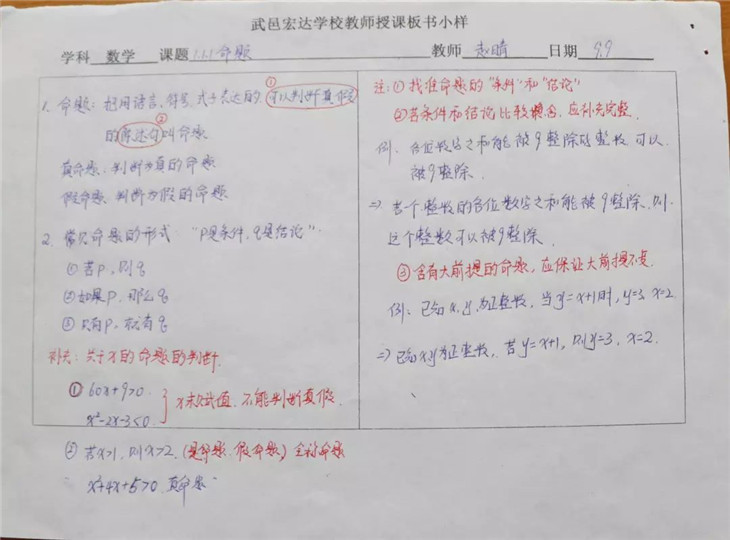 武邑宏达学校教师授课板书小样
学科 数学 课题 1.1.1 命题 教师 赵晴 日期 9.9
1. 命题：把用语言、符号、式子表达的，①可以判断真假
的②陈述句叫命题.
真命题：判断为真的命题
假命题：判断为假的命题
2. 常见命题的形式 “P是条件，q是结论”.
①若P，则q
②如果P，那么q
③只有P，就有q
补充：关于x的命题的判断.
① 60x+9>0.
x²-2x-3≤0
x未赋值，不能判断真假.
② 若x>1，则x>2.(是命题、假命题) 全称命题
x²+4x+5>0. 真命题
注：①找准命题的“条件”和“结论”
②若条件和结论比较隐含，应补充完整.
例：各位数字之和能被9整除的整数可以
被9整除.
⇒ 若个整数的各位数字之和能被9整除，则
这个整数可以被9整除.
③含有大前提的命题，应保证大前提不变.
例：已知x,y为正整数，当y=x+1时，y=3, x=2
⇒ 已知x,y为正整数，若y=x+1，则y=3，x=2.